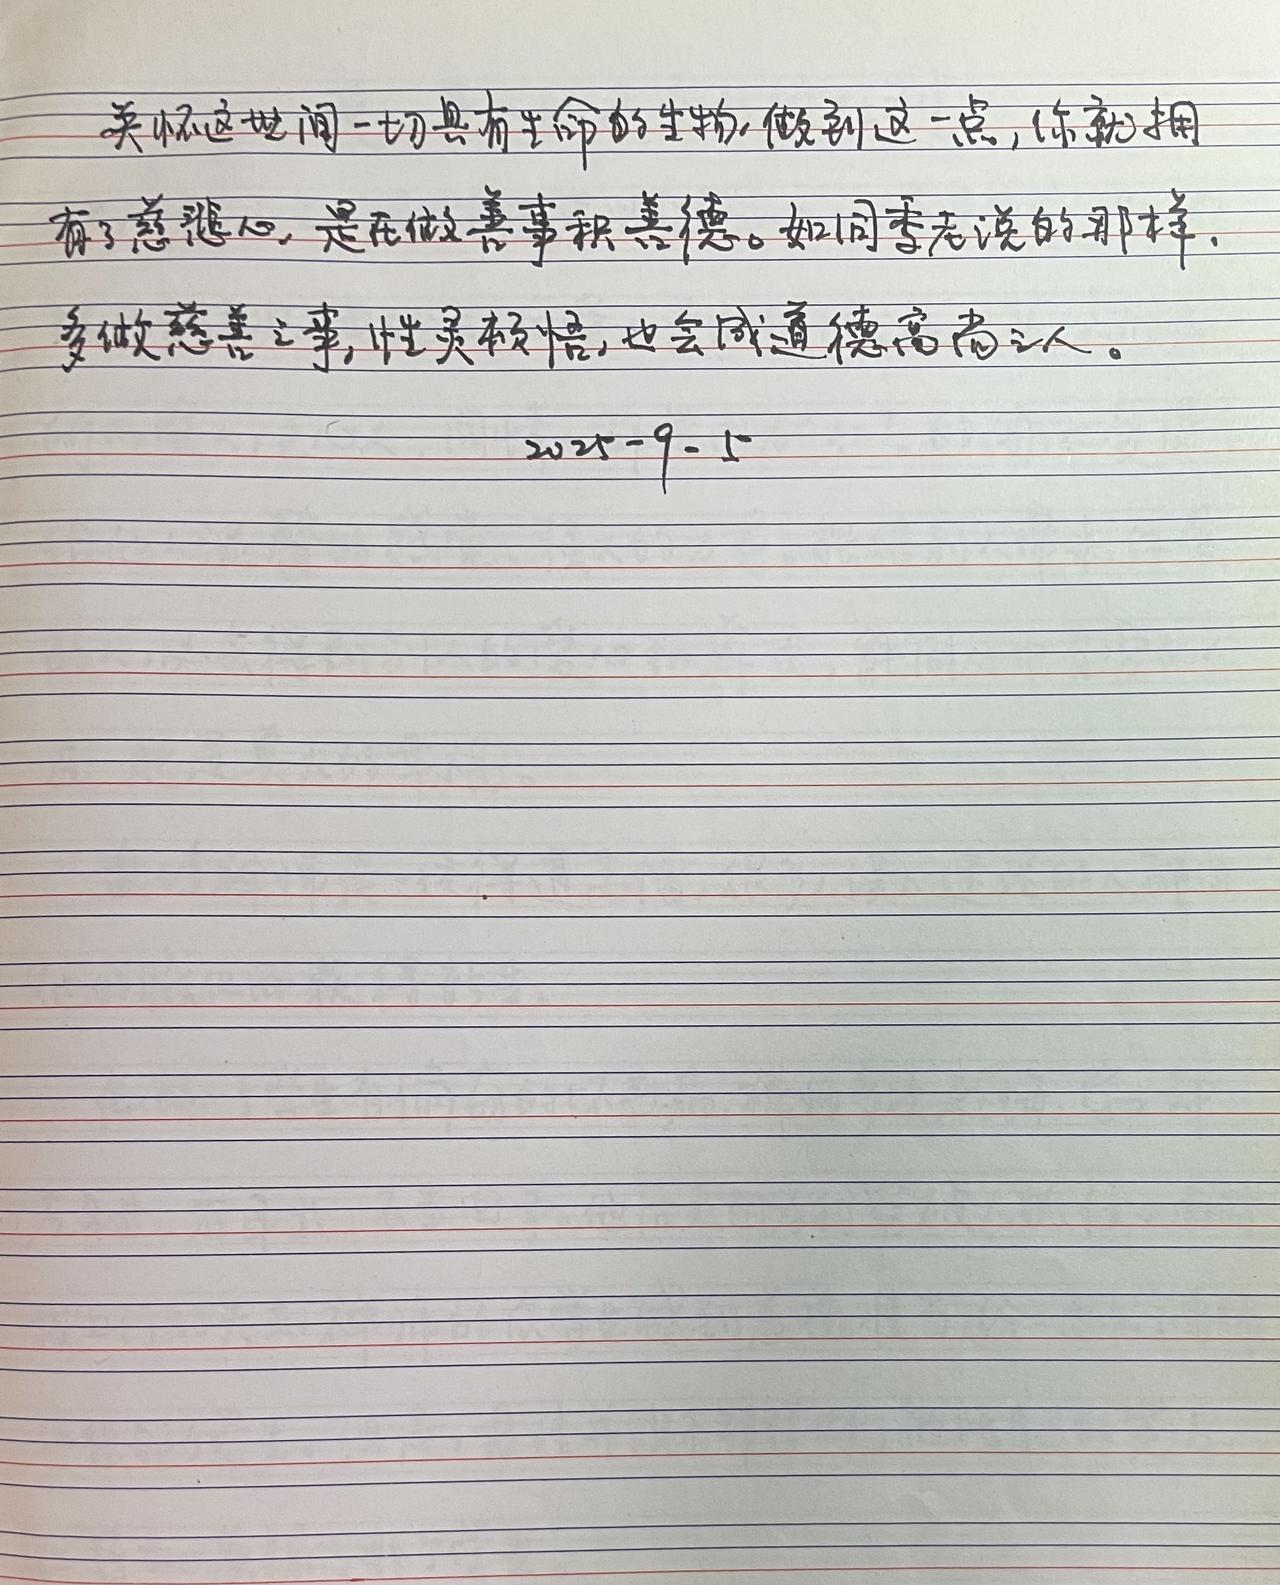 关怀这世间一切具有生命的生物,做到这一点,你就拥
有了慈悲心,是在做善事积善德。如同季老说的那样,
多做慈善之事,性灵顿悟,也会成道德高尚之人。
2025-9-5